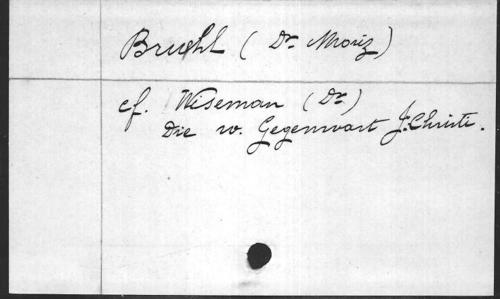 Bruehl (Dr. Moriz)
cf. Wiseman (Dr)
Die w. Gegenwart J. Christi.